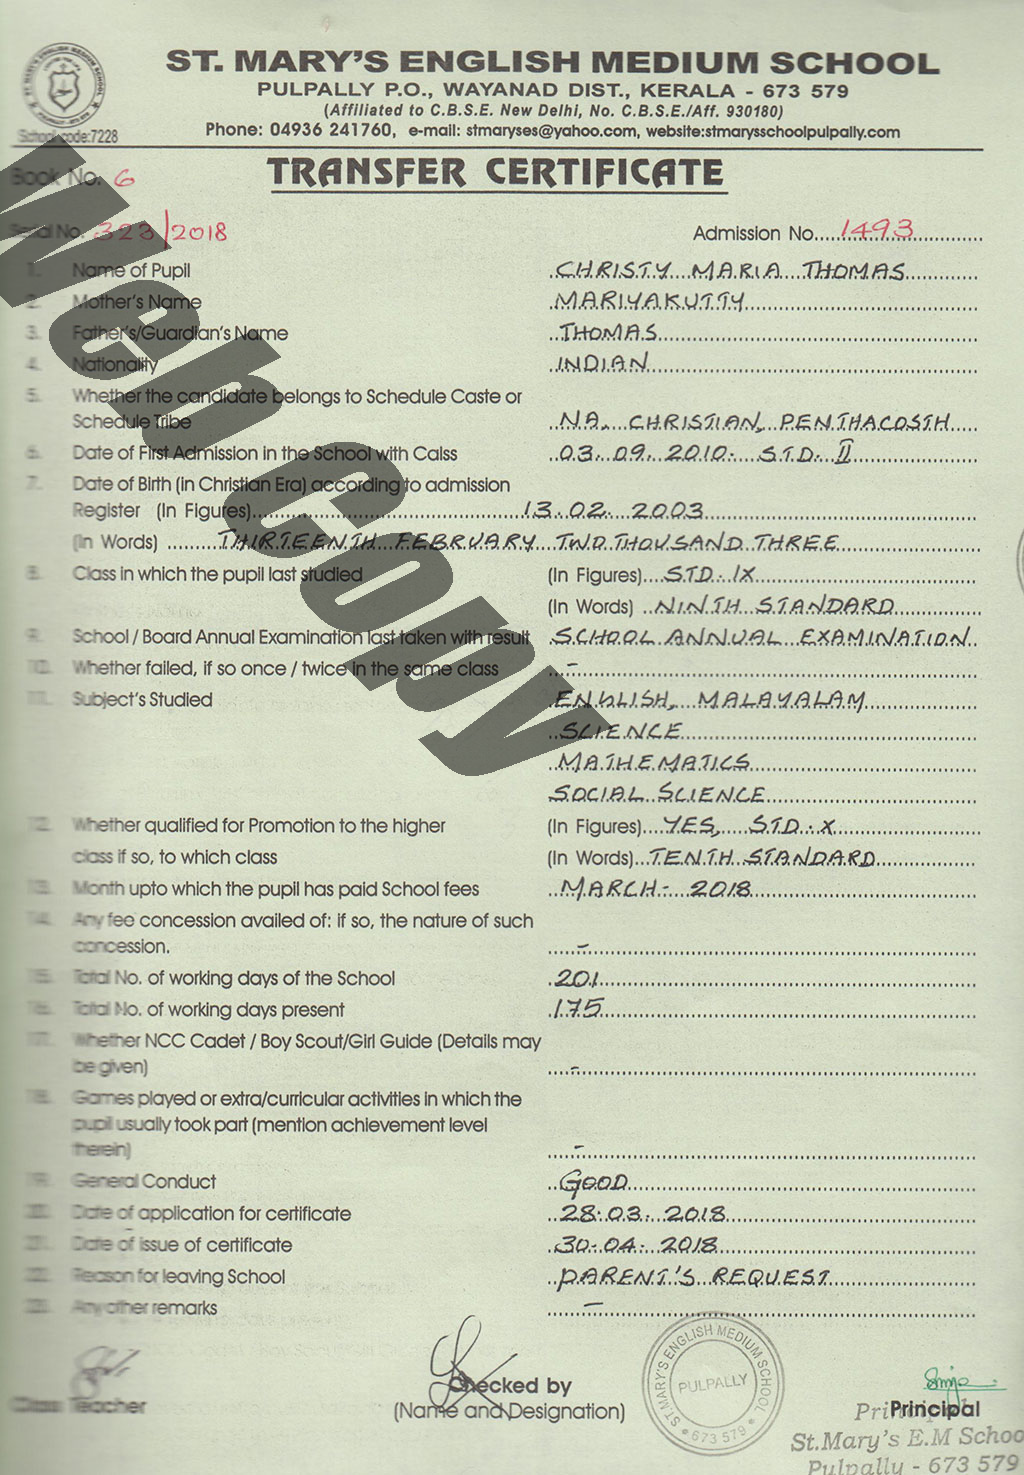 ST. MARY'S ENGLISH MEDIUM SCHOOL
PULPALLY P.O., WAYANAD DIST., KERALA - 673 579
(Affiliated to C.B.S.E. New Delhi, No. C.B.S.E./Aff. 930180)
School code:7228
Phone: 04936 241760, e-mail: stmaryses@yahoo.com, website:stmarysschoolpulpally.com
TRANSFER CERTIFICATE
Book No. 6
Serial No. 323/2018 Admission No. 1493
1. Name of Pupil CHRISTY MARIA THOMAS
2. Mother's Name MARIYAKUTTY
3. Father's/Guardian's Name THOMAS
4. Nationality INDIAN
5. Whether the candidate belongs to Schedule Caste or
Schedule Tribe NA, CHRISTIAN, PENTHACOSTH
6. Date of First Admission in the School with Calss 03.09.2010. STD. II
7. Date of Birth (in Christian Era) according to admission
Register (In Figures) 13.02.2003
(In Words) THIRTEENTH FEBRUARY TWO THOUSAND THREE
8. Class in which the pupil last studied (In Figures) STD. IX
(In Words) NINTH STANDARD
9. School / Board Annual Examination last taken with result SCHOOL ANNUAL EXAMINATION
10. Whether failed, if so once / twice in the same class -
11. Subject's Studied ENGLISH, MALAYALAM
SCIENCE
MATHEMATICS
SOCIAL SCIENCE
12. Whether qualified for Promotion to the higher (In Figures) YES, STD. X
class if so, to which class (In Words) TENTH STANDARD
13. Month upto which the pupil has paid School fees MARCH - 2018
14. Any fee concession availed of: if so, the nature of such
concession. -
15. Total No. of working days of the School 201
16. Total No. of working days present 175
17. Whether NCC Cadet / Boy Scout/Girl Guide (Details may
be given) -
18. Games played or extra/curricular activities in which the
pupil usually took part (mention achievement level
therein) -
19. General Conduct GOOD
20. Date of application for certificate 28.03.2018
21. Date of issue of certificate 30.04.2018
22. Reason for leaving School PARENT'S REQUEST
23. Any other remarks -
Class Teacher
Checked by
(Name and Designation)
ST.MARY'S ENGLISH MEDIUM SCHOOL
PULPALLY
673 579
Principal
St.Mary's E.M Schoo
Pulpally - 673 579
Web Copy